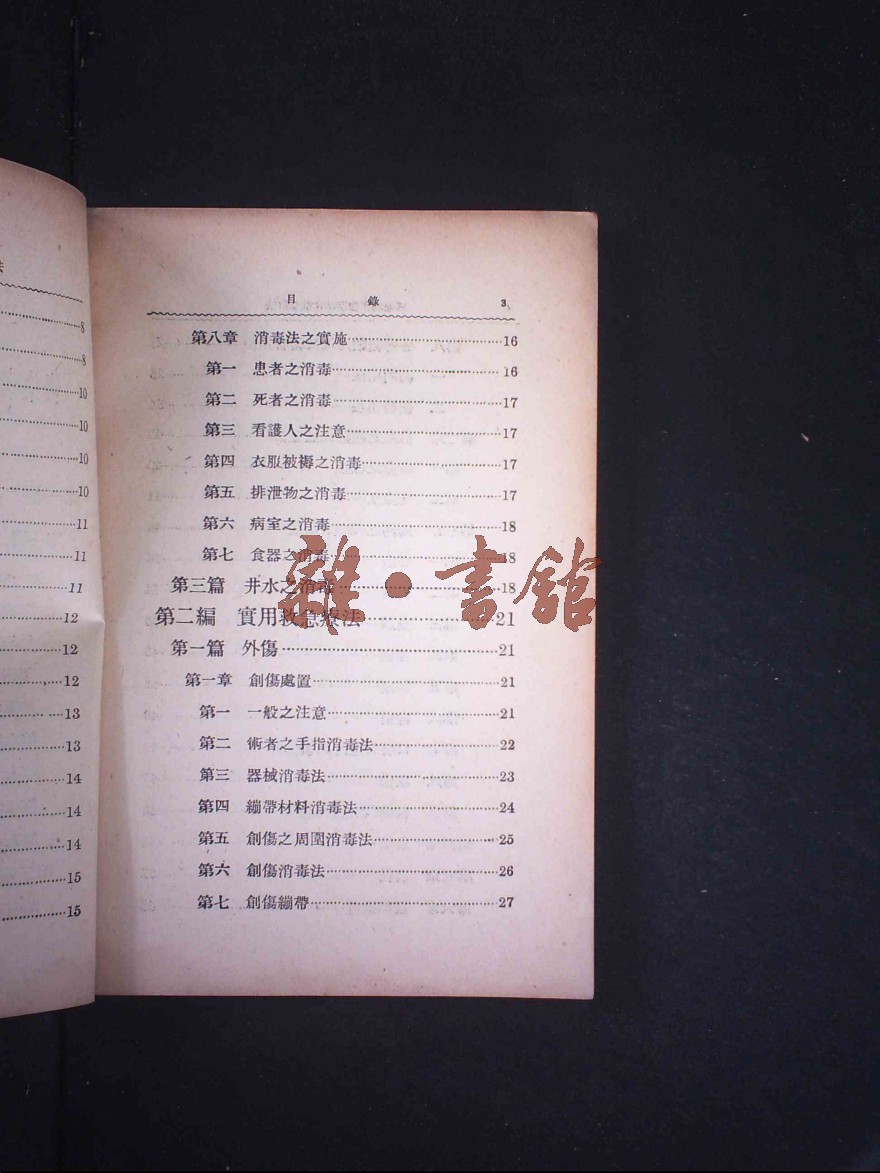 法
8
8
10
10
10
10
11
11
11
12
12
12
13
13
14
14
14
15
15
目錄 3
第八章 消毒法之實施 16
第一 患者之消毒 16
第二 死者之消毒 17
第三 看護人之注意 17
第四 衣服被褥之消毒 17
第五 排泄物之消毒 17
第六 病室之消毒 18
第七 食器之消毒 18
第三篇 井水之消毒 18
第二編 實用救急療法 21
第一篇 外傷 21
第一章 創傷處置 21
第一 一般之注意 21
第二 術者之手指消毒法 22
第三 器械消毒法 23
第四 繃帶材料消毒法 24
第五 創傷之周圍消毒法 25
第六 創傷消毒法 26
第七 創傷繃帶 27
雜·書館